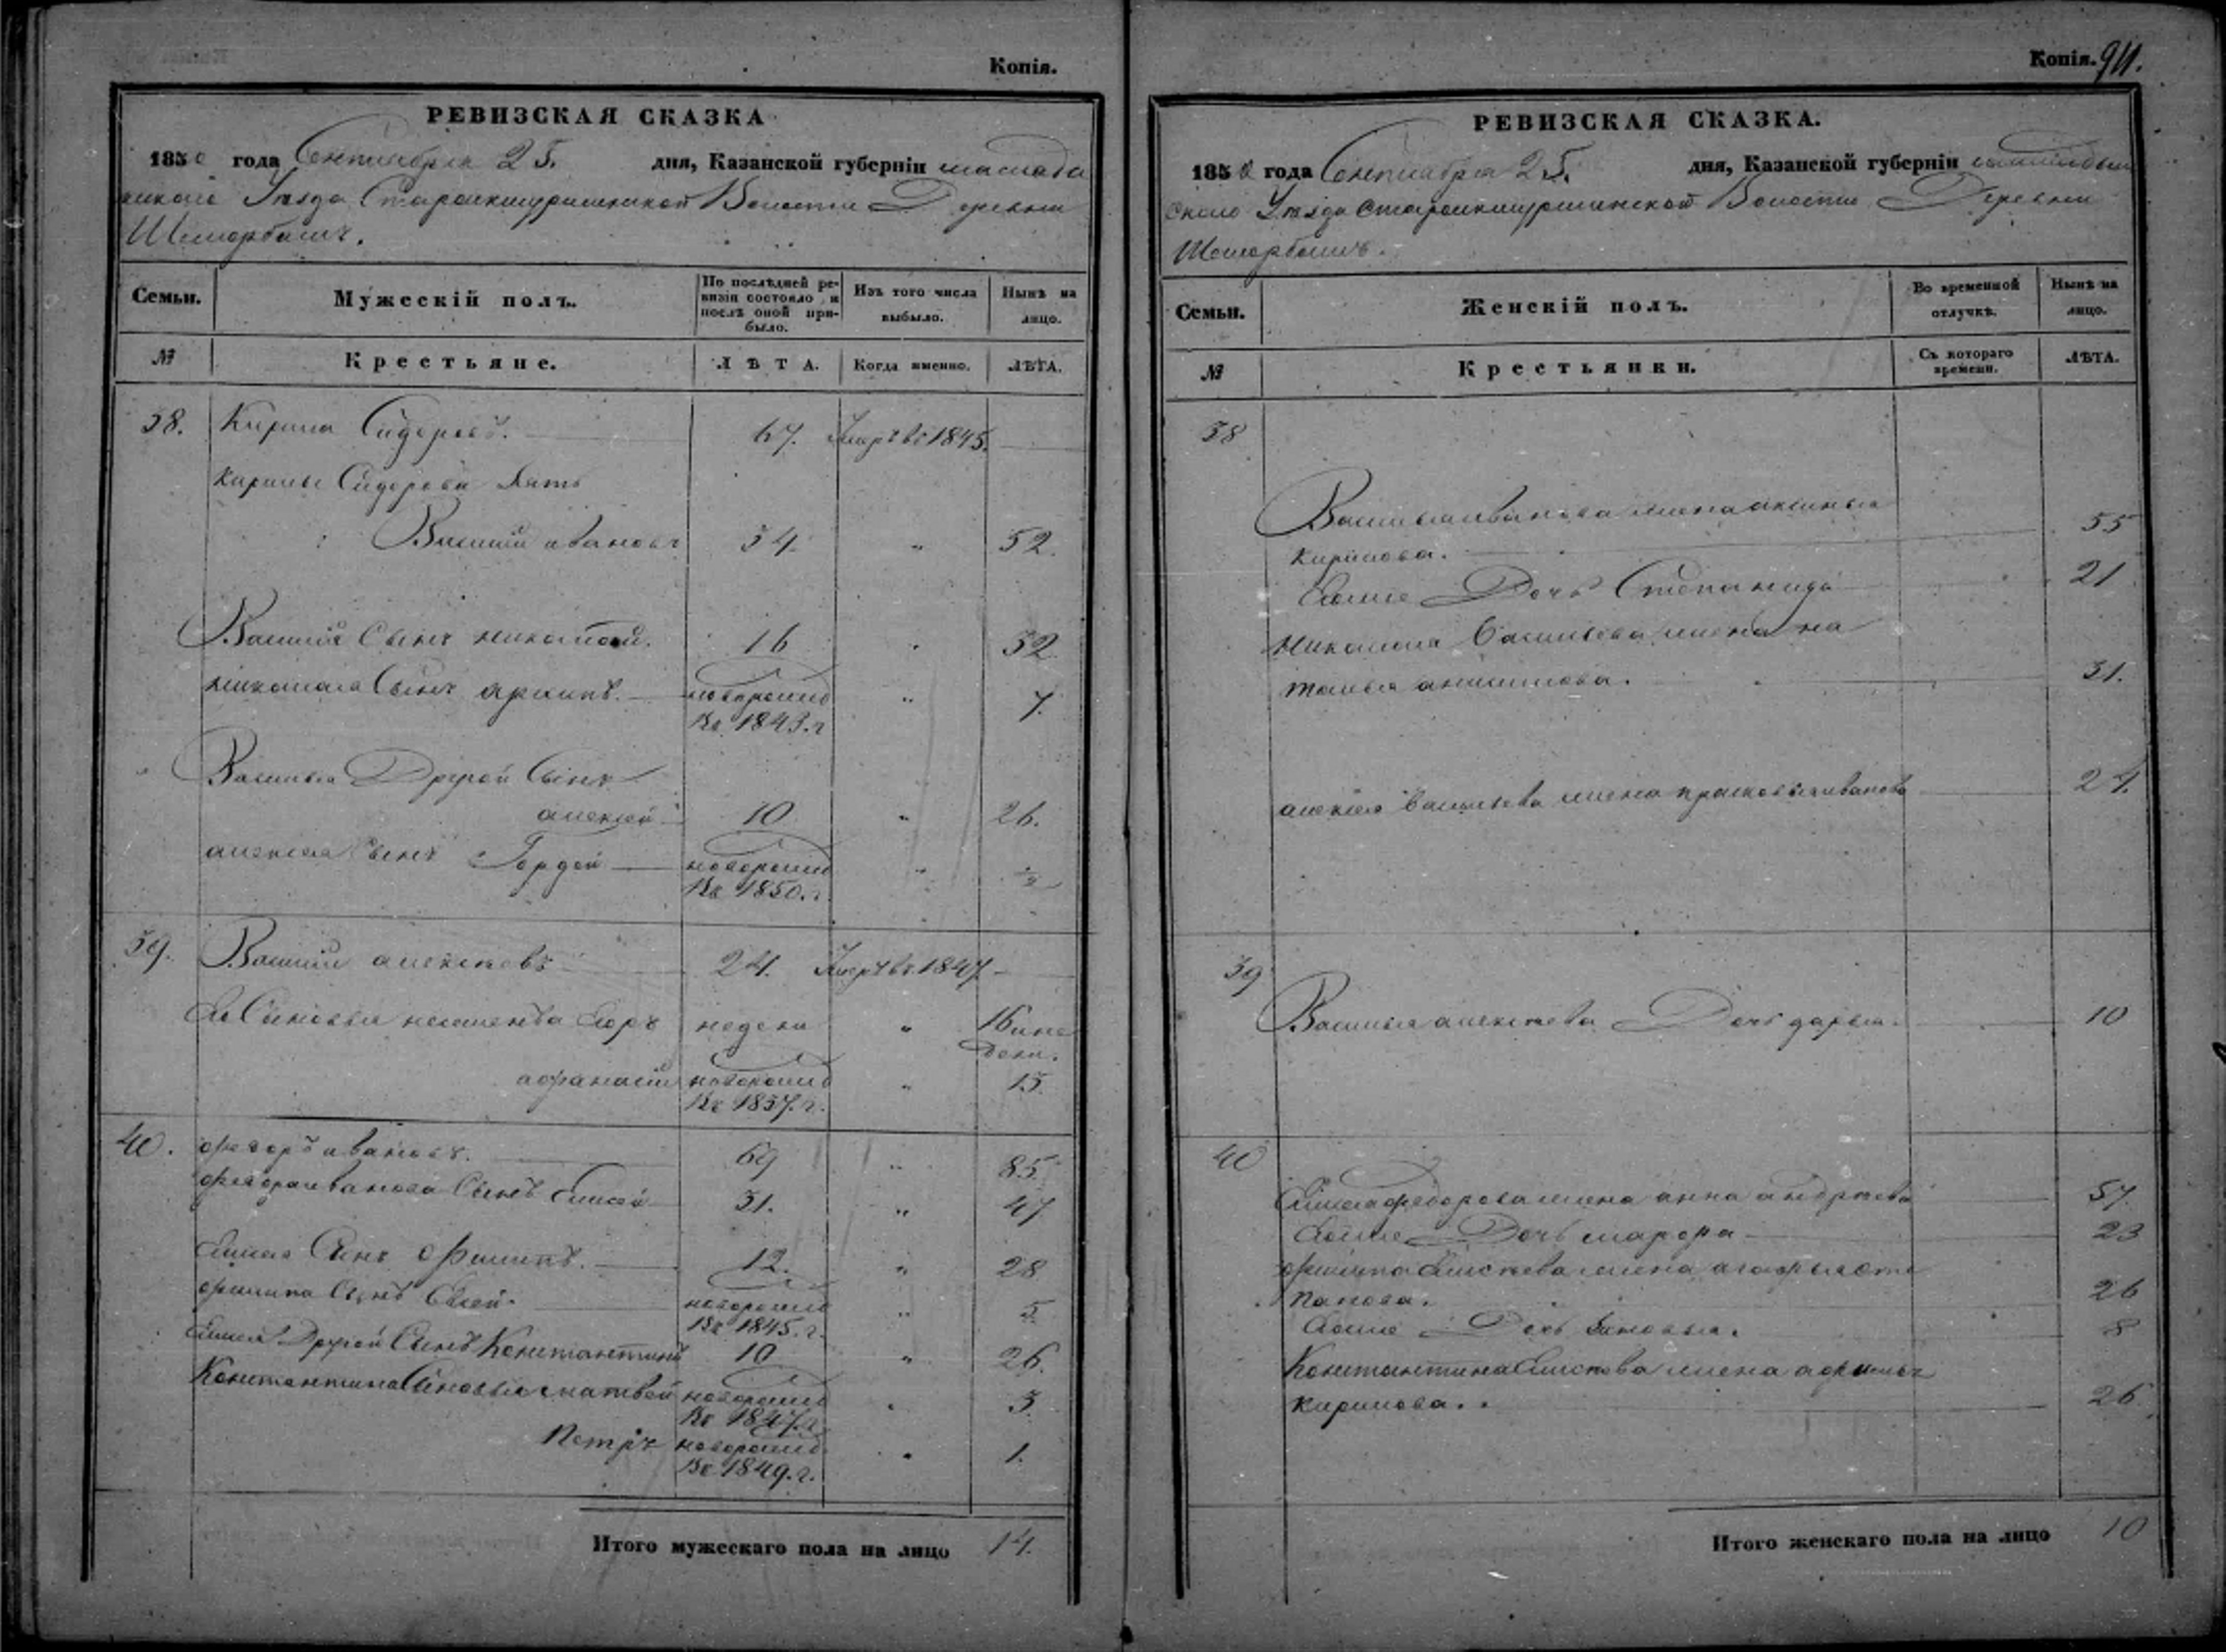 Копія.
РЕВИЗСКАЯ СКАЗКА
1850 года Сентября 25. дня, Казанской губерніи мамады
скаго Уезда Старокшуршинской Волости Деревни
Шеморбашъ.
Семьи.
Мужескій полъ.
По послѣдней ре-
визіи состояло и
послѣ оной при-
было.
Изъ того числа
выбыло.
Нынѣ на
лицо.
№
Крестьяне.
ЛѢТА.
Когда именно.
ЛѢТА.
38. Кирила Сидоровъ. 67. Умеръ въ 1845.
Кирилы Сидорова Зять
Василий ивановъ 34. " 52.
Василия Сынъ николай. 16 " 32
николая Сынъ архипъ. новорожд " 7.
Въ 1843. г
Василья Другой Сынъ
алексей 10 " 26.
алексея Сынъ Гордей новорожд " ½
Въ 1850. г.
39. Василий алексеевъ 24. Умеръ въ 1847.
Ево Сыновья Егоръ недели " 16 и не
дели.
афанасий новорожд " 13.
Въ 1837. г.
40. федоръ ивановъ. 69 " 85.
федора иванова Сынъ Елисей 31. " 47
Елисея Сынъ Филипъ. 12. " 28
филипа Сынъ Евсей. новорожд " 5
Въ 1845. г.
Елисея Другой Сынъ Константинъ 10 " 26.
Константина Сыновья матвей новорожд " 3.
Въ 1847. г
Петръ новорожд " 1.
Въ 1849. г.
Итого мужескаго пола на лицо 14.
Копія. 911.
РЕВИЗСКАЯ СКАЗКА.
1850 года Сентября 25. дня, Казанской губерніи мамады
скаго Уезда Старокшуршинской Волости Деревни
Шеморбашъ.
Семьи.
Женскій полъ.
Во временной
отлучкѣ.
Нынѣ на
лицо.
№
Крестьянки.
Съ котораго
времени.
ЛѢТА.
38
Василья иванова жена аксинья
Кирилова. 55
Ево же Дочь Степанида 21
Николая Васильева жена на
талья анисимова. 31.
алексея Васильева жена прасковья иванова 24.
39
Василья алексеева Дочь дарья. 10
40
Елисея федорова жена анна андреева 57.
Ево же Дочь марфа 23
филипа Елисеева жена агафья сте
панова. 26
Ево же Дочь Зиновья. 8
Константина Елисеева жена
Кирилова. 26.
Итого женскаго пола на лицо 10